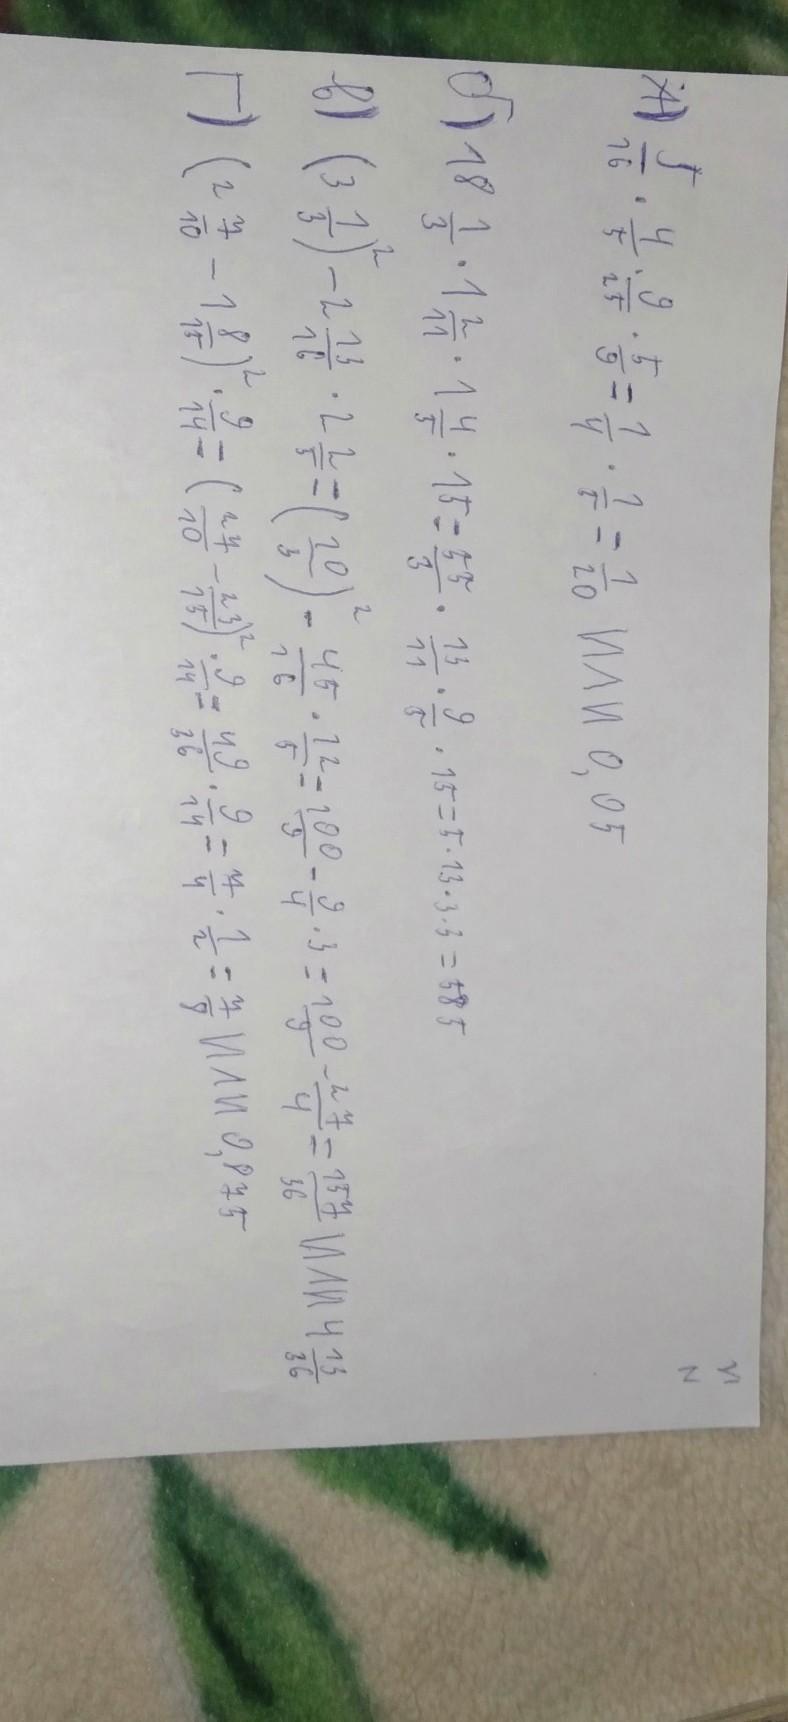 А) 5/16 · 4/5 · 9/25 · 5/9 = 1/4 · 1/5 = 1/20 или 0,05
б) 18 1/3 · 1 2/11 · 1 4/5 · 15 = 55/3 · 13/11 · 9/5 · 15 = 5 · 13 · 3 · 3 = 585
в) (3 1/3)² - 2 13/16 · 2 2/5 = (10/3)² - 45/16 · 12/5 = 100/9 - 9/4 · 3 = 100/9 - 27/4 = 157/36 или 4 13/36
Г) (2 7/10 - 1 8/15)² · 9/14 = (27/10 - 23/15)² · 9/14 = 49/36 · 9/14 = 7/4 · 1/2 = 7/8 или 0,875